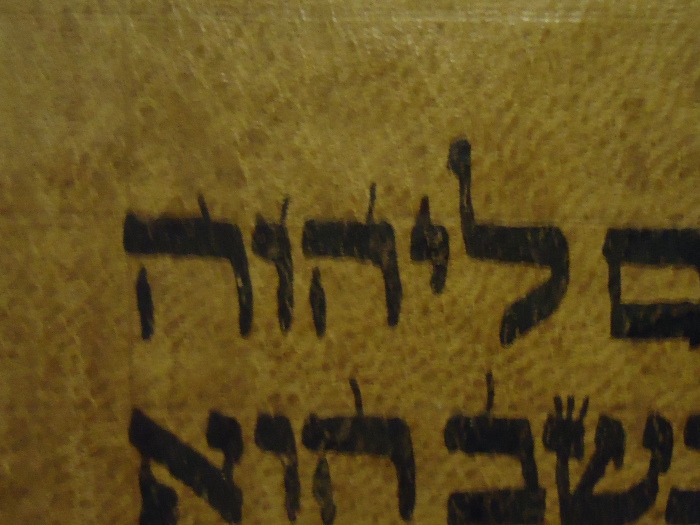 ם ליהוה
כשב הוא